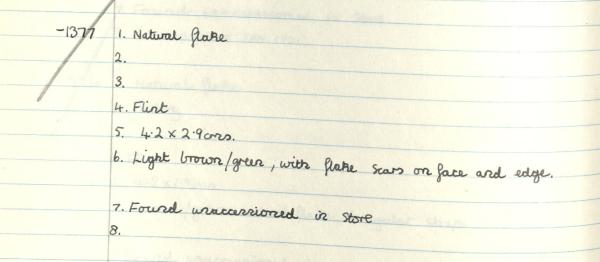 -1377 1. Natural flake
2.
3.
4. Flint
5. 4.2 x 2.9cms.
6. Light brown/green, with flake scars on face and edge.
7. Found unaccessioned in store
8.